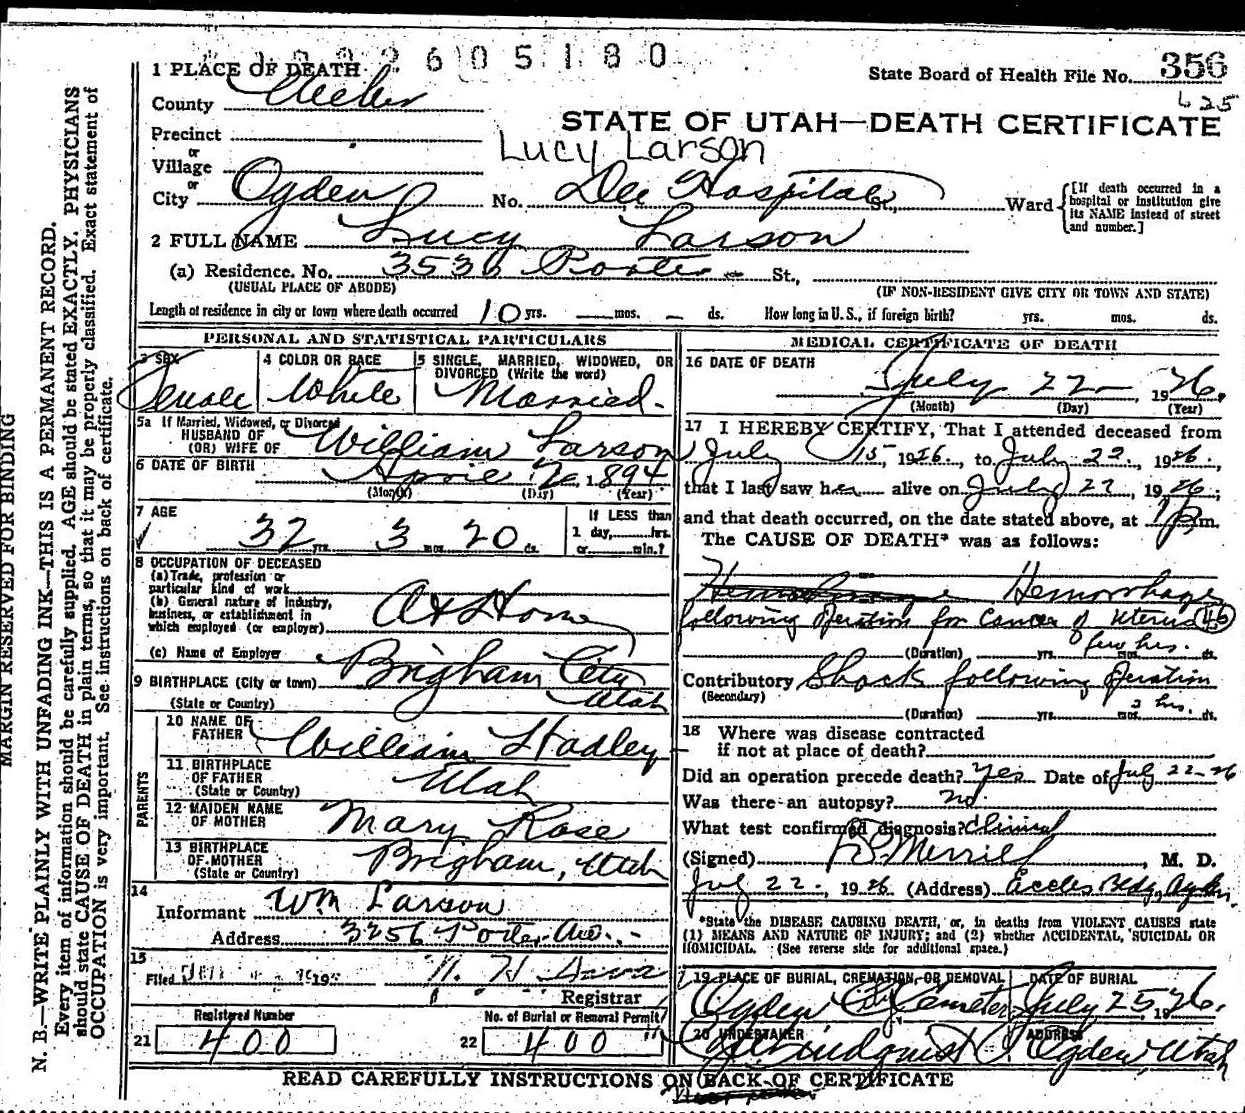 2605180
1 PLACE OF DEATH
State Board of Health File No. 356
625
County Weber
STATE OF UTAH—DEATH CERTIFICATE
Precinct
Lucy Larson
or
Village
or
City Ogden No. Dee Hospital St., Ward {[If death occurred in a hospital or institution give its NAME instead of street and number.]
2 FULL NAME Lucy Larson
(a) Residence. No. 3536 Porter St.,
(USUAL PLACE OF ABODE) (IF NON-RESIDENT GIVE CITY OR TOWN AND STATE)
Length of residence in city or town where death occurred 10 yrs. — mos. — ds. How long in U.S., if foreign birth? yrs. mos. ds.
PERSONAL AND STATISTICAL PARTICULARS
3 SEX Female
4 COLOR OR RACE White
5 SINGLE, MARRIED, WIDOWED, OR DIVORCED (Write the word) Married.
5a If Married, Widowed, or Divorced
HUSBAND OF
(OR) WIFE OF William Larson
6 DATE OF BIRTH April 2 1894
(Month) (Day) (Year)
7 AGE 32 yrs. 3 mos. 20 ds.
If LESS than
1 day, hrs.
or min.?
8 OCCUPATION OF DECEASED
(a) Trade, profession or
particular kind of work
(b) General nature of industry,
business, or establishment in
which employed (or employer) At Home
(c) Name of Employer
9 BIRTHPLACE (City or town) Brigham City
(State or Country) Utah
PARENTS
10 NAME OF FATHER William Hadley
11 BIRTHPLACE OF FATHER (State or Country) Utah
12 MAIDEN NAME OF MOTHER Mary Rose
13 BIRTHPLACE OF MOTHER (State or Country) Brigham, Utah
14
Informant Wm Larson
Address 3256 Porter Ave.
15
Filed 19
Registrar
Registered Number
21 400
No. of Burial or Removal Permit
22 400
MEDICAL CERTIFICATE OF DEATH
16 DATE OF DEATH
July 22 1926.
(Month) (Day) (Year)
17 I HEREBY CERTIFY, That I attended deceased from
July 15, 1926, to July 22, 1926,
that I last saw her alive on July 22, 1926;
and that death occurred, on the date stated above, at 1 p.m.
The CAUSE OF DEATH* was as follows:
Hemorrhage
following operation for Cancer of Uterus 45
(Duration) yrs. mos. few hrs. ds.
Contributory Shock following operation
(Secondary)
(Duration) yrs. mos. 3 hrs. ds.
18 Where was disease contracted
if not at place of death?
Did an operation precede death? Yes Date of July 22-26
Was there an autopsy? no.
What test confirmed diagnosis? Clinical
(Signed) Merrill, M. D.
July 22, 1926 (Address) Eccles Bldg, Ogden.
*State the DISEASE CAUSING DEATH, or, in deaths from VIOLENT CAUSES state
(1) MEANS AND NATURE OF INJURY; and (2) whether ACCIDENTAL, SUICIDAL OR
HOMICIDAL. (See reverse side for additional space.)
19 PLACE OF BURIAL, CREMATION, OR REMOVAL DATE OF BURIAL
Ogden City Cemetery July 25 1926.
20 UNDERTAKER ADDRESS
Lindquist Ogden, Utah
READ CAREFULLY INSTRUCTIONS ON BACK OF CERTIFICATE
MARGIN RESERVED FOR BINDING
N. B.—WRITE PLAINLY WITH UNFADING INK—THIS IS A PERMANENT RECORD.
Every item of information should be carefully supplied. AGE should be stated EXACTLY. PHYSICIANS
should state CAUSE OF DEATH in plain terms, so that it may be properly classified. Exact statement of
OCCUPATION is very important. See instructions on back of certificate.